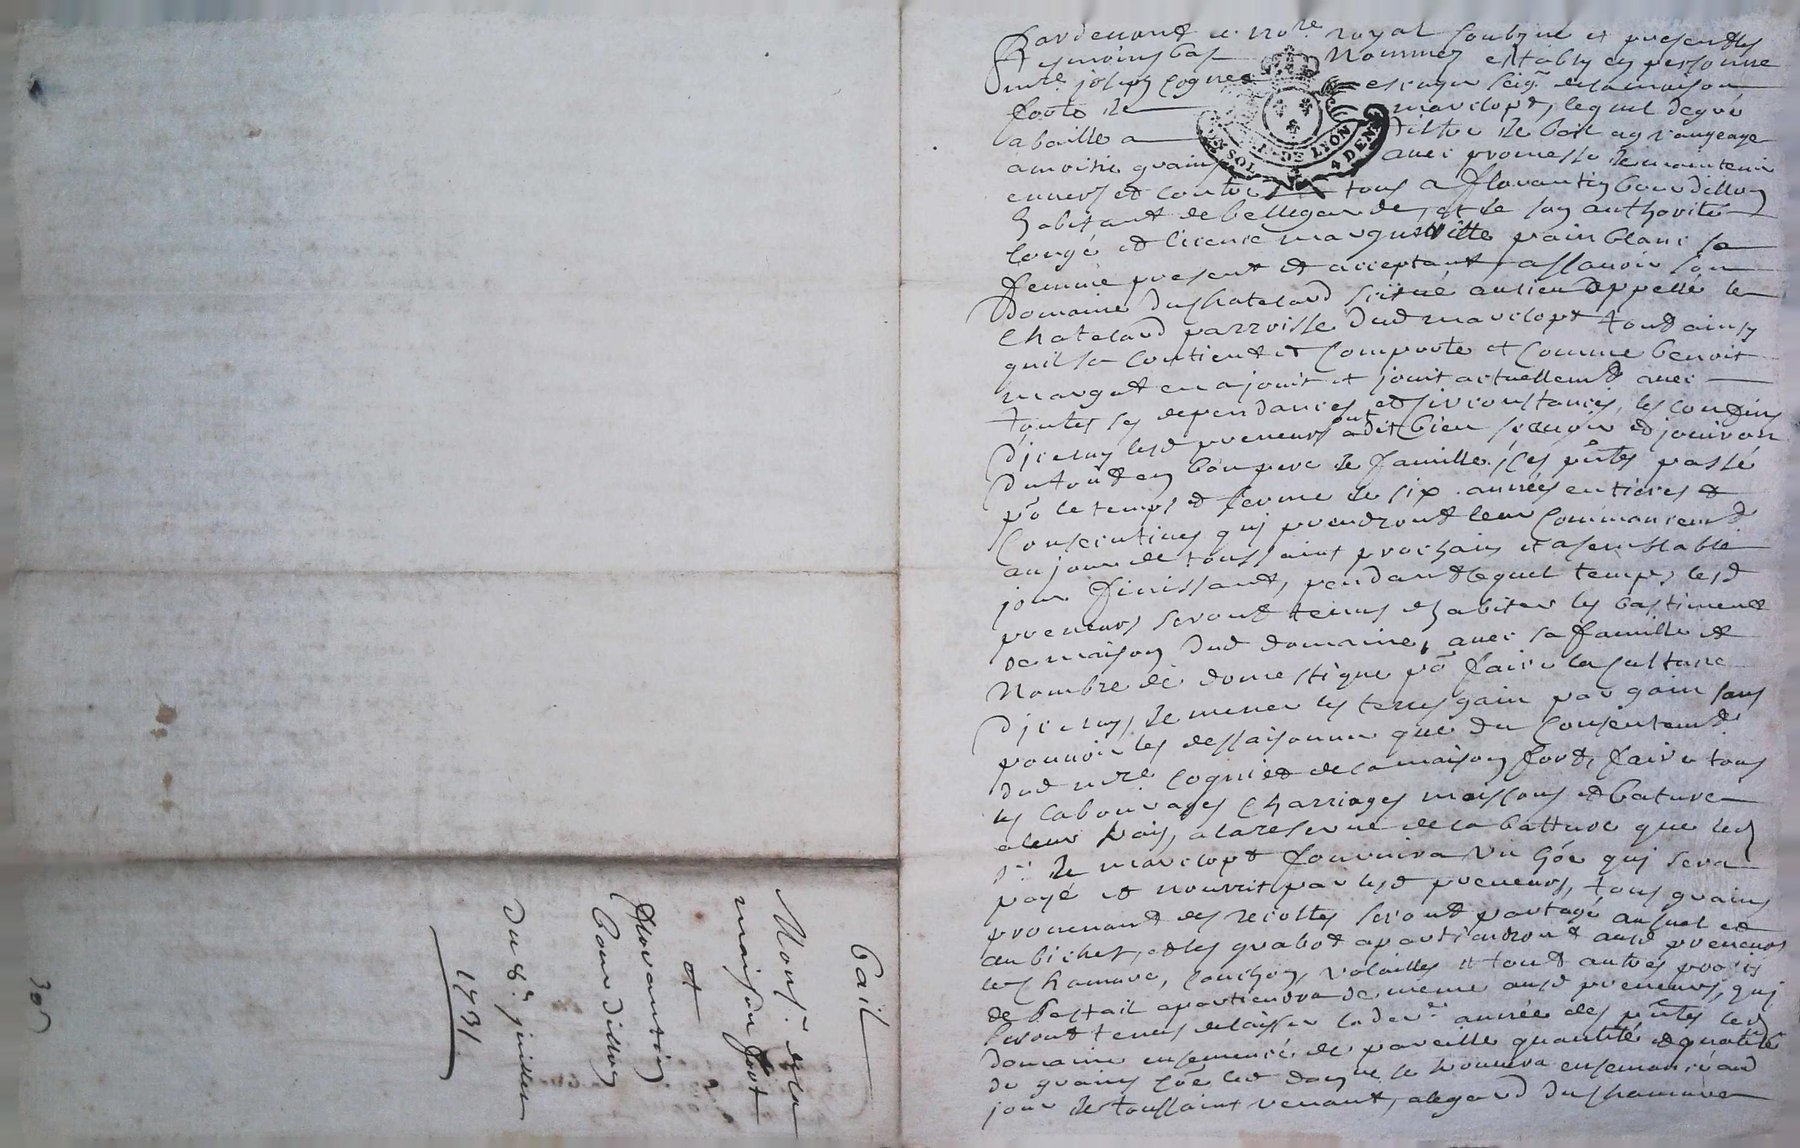 Bail
Mons.r dela
maison fort
et
florantin
Bourdillon
Du 8e juillet
1731
305
Pardevant le no.re royal soubzné et presents les
tesmoins bas nommez estably en personne
m.e joseph cognet escuyer seigr de la maison
forte de mavelopt, lequel de gré
a baillé a titre de bail a grangeage
a moitié grains avec promesse de maintenir
envers et contre tous a florantin bourdillon
habitant de bellegarde, et de son authorité
congé et licence margueritte painblanc sa
femme present et acceptant assavoir son
domaine du chatelard scitué au lieu appellé le
chatelard parroisse dud mavelopt tout ainsy
quil se contient et comporte et comme benoit
margot en a jouit et jouit actuellemt avec
toutes ses dependances et sirconstances, les confins
diceluy lesd preneurs ont dit bien scavoir et jouiron
du tout en bon pere de famille, les pntes passé
po le temps et ferme de six années entieres et
consecutives qui prendront leur commancemt
au jour de toussaint prochain et a semblable
jour finissant, pendant lequel temps lesd
preneurs seront tenus dhabiter les bastiments
de maison dud domaine, avec sa famille et
nombre de domestique po faire la culture
dicelluy, de mener les terres gain par gain sans
pouvoir les dessaisonner que du consentemt
dud m.re cognet de la maison fort, faire tous
les labourages charriages moissons et bature
a leur frais, a la reserve de la batture que led
sr de mavelopt fournira un hoe qui sera
payé et nourrit par lesd preneurs, tous grains
provenant des recoltes seront partagé au suel et
au bichet, et les grabot apartiendront ausd preneurs
le chanvre, couchon, volailles et tout autres profis
de bestail apartiendra de meme ausd preneurs, qui
seront tenus de laisser la der.e année des pntes led
domaine ensemencé de pareille quantité et qualité
de grains coe led domne se trouvera ensemancé au
jour de toussaint venant, a legard du chanvre